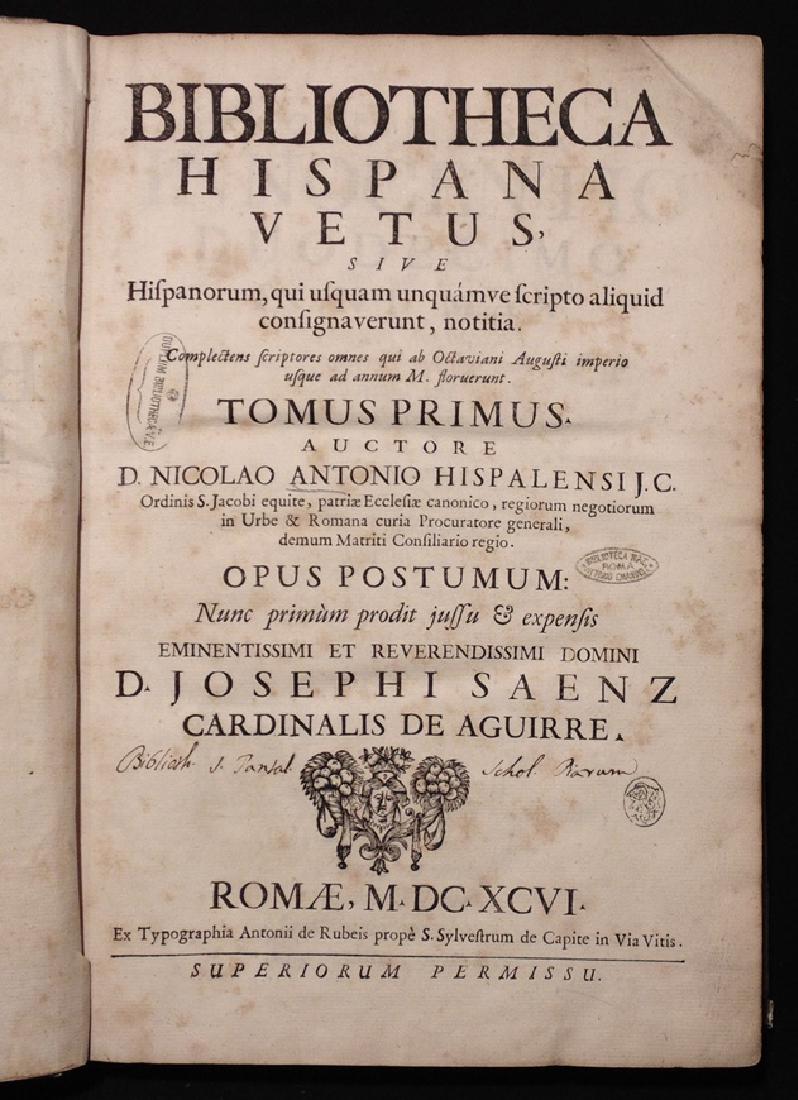 BIBLIOTHECA
HISPANA
VETUS,
SIVE
Hiſpanorum, qui uſquam unquámve ſcripto aliquid
conſignaverunt, notitia.
Complectens ſcriptores omnes qui ab Octaviani Auguſti imperio
uſque ad annum M. floruerunt.
TOMUS PRIMUS.
AUCTORE
D. NICOLAO ANTONIO HISPALENSI J.C.
Ordinis S. Jacobi equite, patriæ Eccleſiæ canonico, regiorum negotiorum
in Urbe & Romana curia Procuratore generali,
demum Matriti Conſiliario regio.
BIBLIOTECA NAZ.
ROMA
VITTORIO EMANUELE
OPUS POSTUMUM:
Nunc primùm prodit juſſu & expenſis
EMINENTISSIMI ET REVERENDISSIMI DOMINI
D. JOSEPHI SAENZ
CARDINALIS DE AGUIRRE.
Biblioth. S. Pantal. Schol. Piarum
ROMÆ, M. DC. XCVI.
Ex Typographia Antonii de Rubeis propè S. Sylveſtrum de Capite in Via Vitis.
SUPERIORUM PERMISSU.